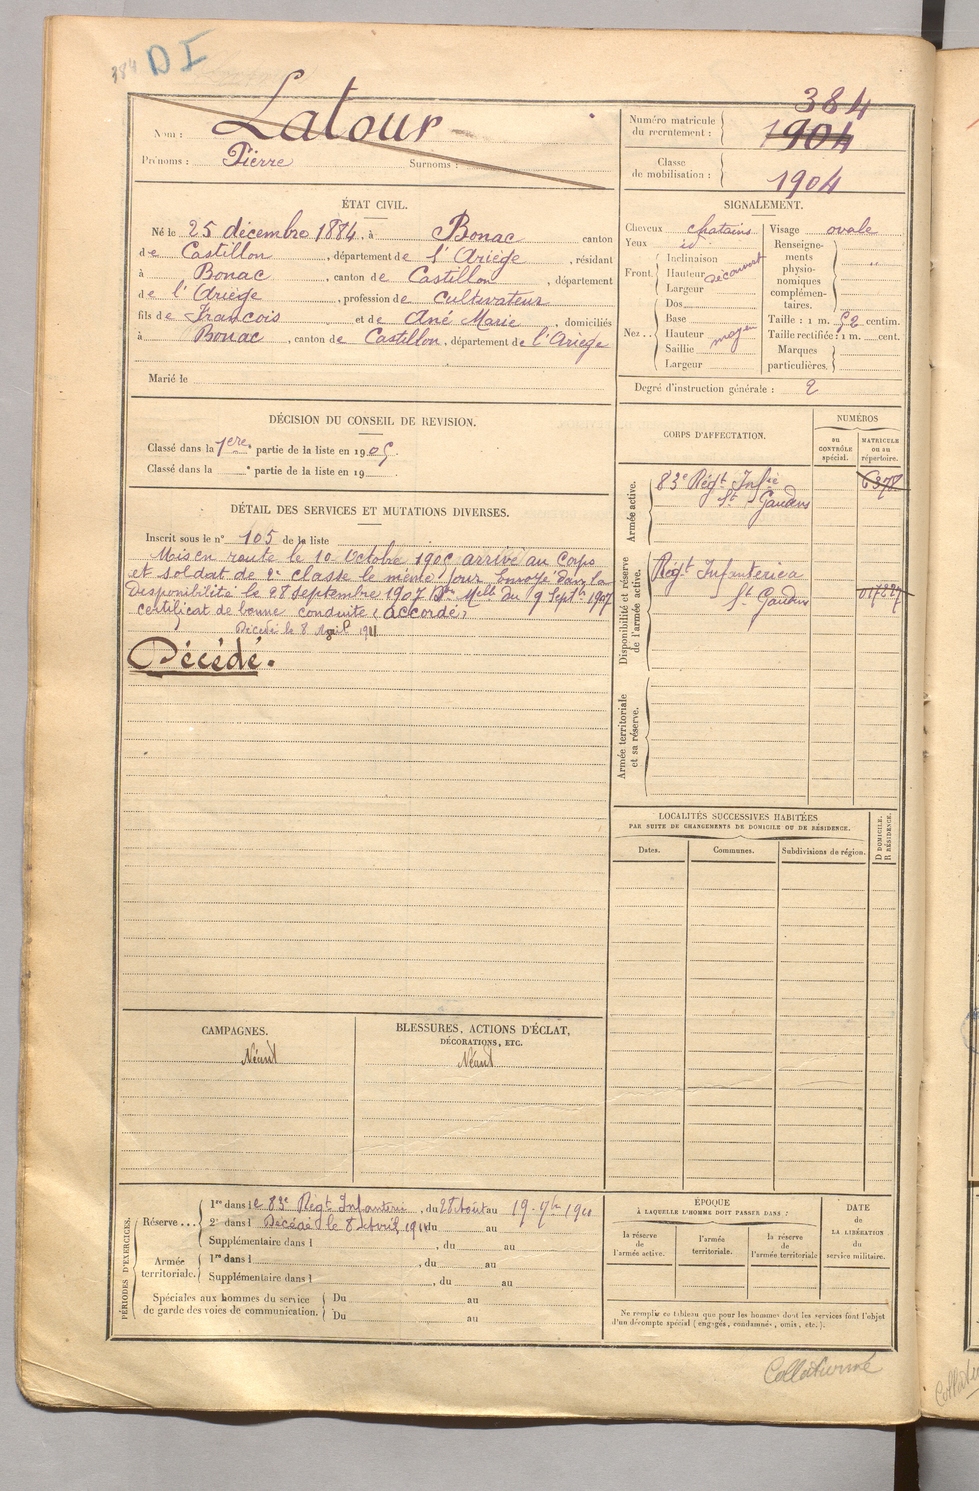 384 D I
Nom : Latour
Prénoms : Pierre Surnoms :
Numéro matricule du recrutement : 384
1904
Classe de mobilisation : 1904
ÉTAT CIVIL.
Né le 25 décembre 1884, à Bonac canton
de Castillon, département de l'Ariège, résidant
à Bonac, canton de Castillon, département
de l'Ariège, profession de Cultivateur
fils de Francois et de Ané Marie, domiciliés
à Bonac, canton de Castillon, département de l'Ariège
Marié le
SIGNALEMENT.
Cheveux chatains
Yeux id
Front. Inclinaison
Hauteur découvert
Largeur
Nez. Dos
Base
Hauteur moyen
Saillie
Largeur
Visage ovale
Renseignements physionomiques complémentaires. "
Taille : 1 m. 52 centim.
Taille rectifiée : 1 m. cent.
Marques particulières.
Degré d'instruction générale : 2
DÉCISION DU CONSEIL DE REVISION.
Classé dans la 1ere partie de la liste en 1905.
Classé dans la e partie de la liste en 19
DÉTAIL DES SERVICES ET MUTATIONS DIVERSES.
Inscrit sous le n° 105 de la liste
Mis en route le 10 Octobre 1905 arrivé au Corps
et soldat de 2e classe le même jour Envoyé dans la
Disponibilité le 28 septembre 1907 du 9 Septbre 1907
certificat de bonne conduite (accordé)
Décédé le 8 Avril 1911
Décédé.
CORPS D'AFFECTATION.
NUMÉROS
au CONTRÔLE spécial.
MATRICULE ou au répertoire.
Armée active.
83e Régt Infie
St Gaudens
6378
Disponibilité et réserve de l'armée active.
Régt Infanterie a
St Gaudens
Armée territoriale et sa réserve.
LOCALITÉS SUCCESSIVES HABITÉES
PAR SUITE DE CHANGEMENTS DE DOMICILE OU DE RÉSIDENCE.
Dates.
Communes.
Subdivisions de région.
D DOMICILE.
R RÉSIDENCE.
CAMPAGNES.
Néant
BLESSURES, ACTIONS D'ÉCLAT,
DÉCORATIONS, ETC.
Néant
PÉRIODES D'EXERCICES.
Réserve ... 1re dans le 83e Régt Infanterie, du 28 Août au 19. 7bre 1910
2e dans l Décédé le 8 Avril 1911 du au
Supplémentaire dans l , du au
Armée territoriale. 1re dans l , du au
Supplémentaire dans l , du au
Spéciales aux hommes du service de garde des voies de communication. Du au
Du au
ÉPOQUE
À LAQUELLE L'HOMME DOIT PASSER DANS :
la réserve de l'armée active.
l'armée territoriale.
la réserve de l'armée territoriale
DATE
DE LA LIBÉRATION
du service militaire.
Ne remplir ce tableau que pour les hommes dont les services font l'objet
d'un décompte spécial (engagés, condamnés, omis, etc.).
Collationné